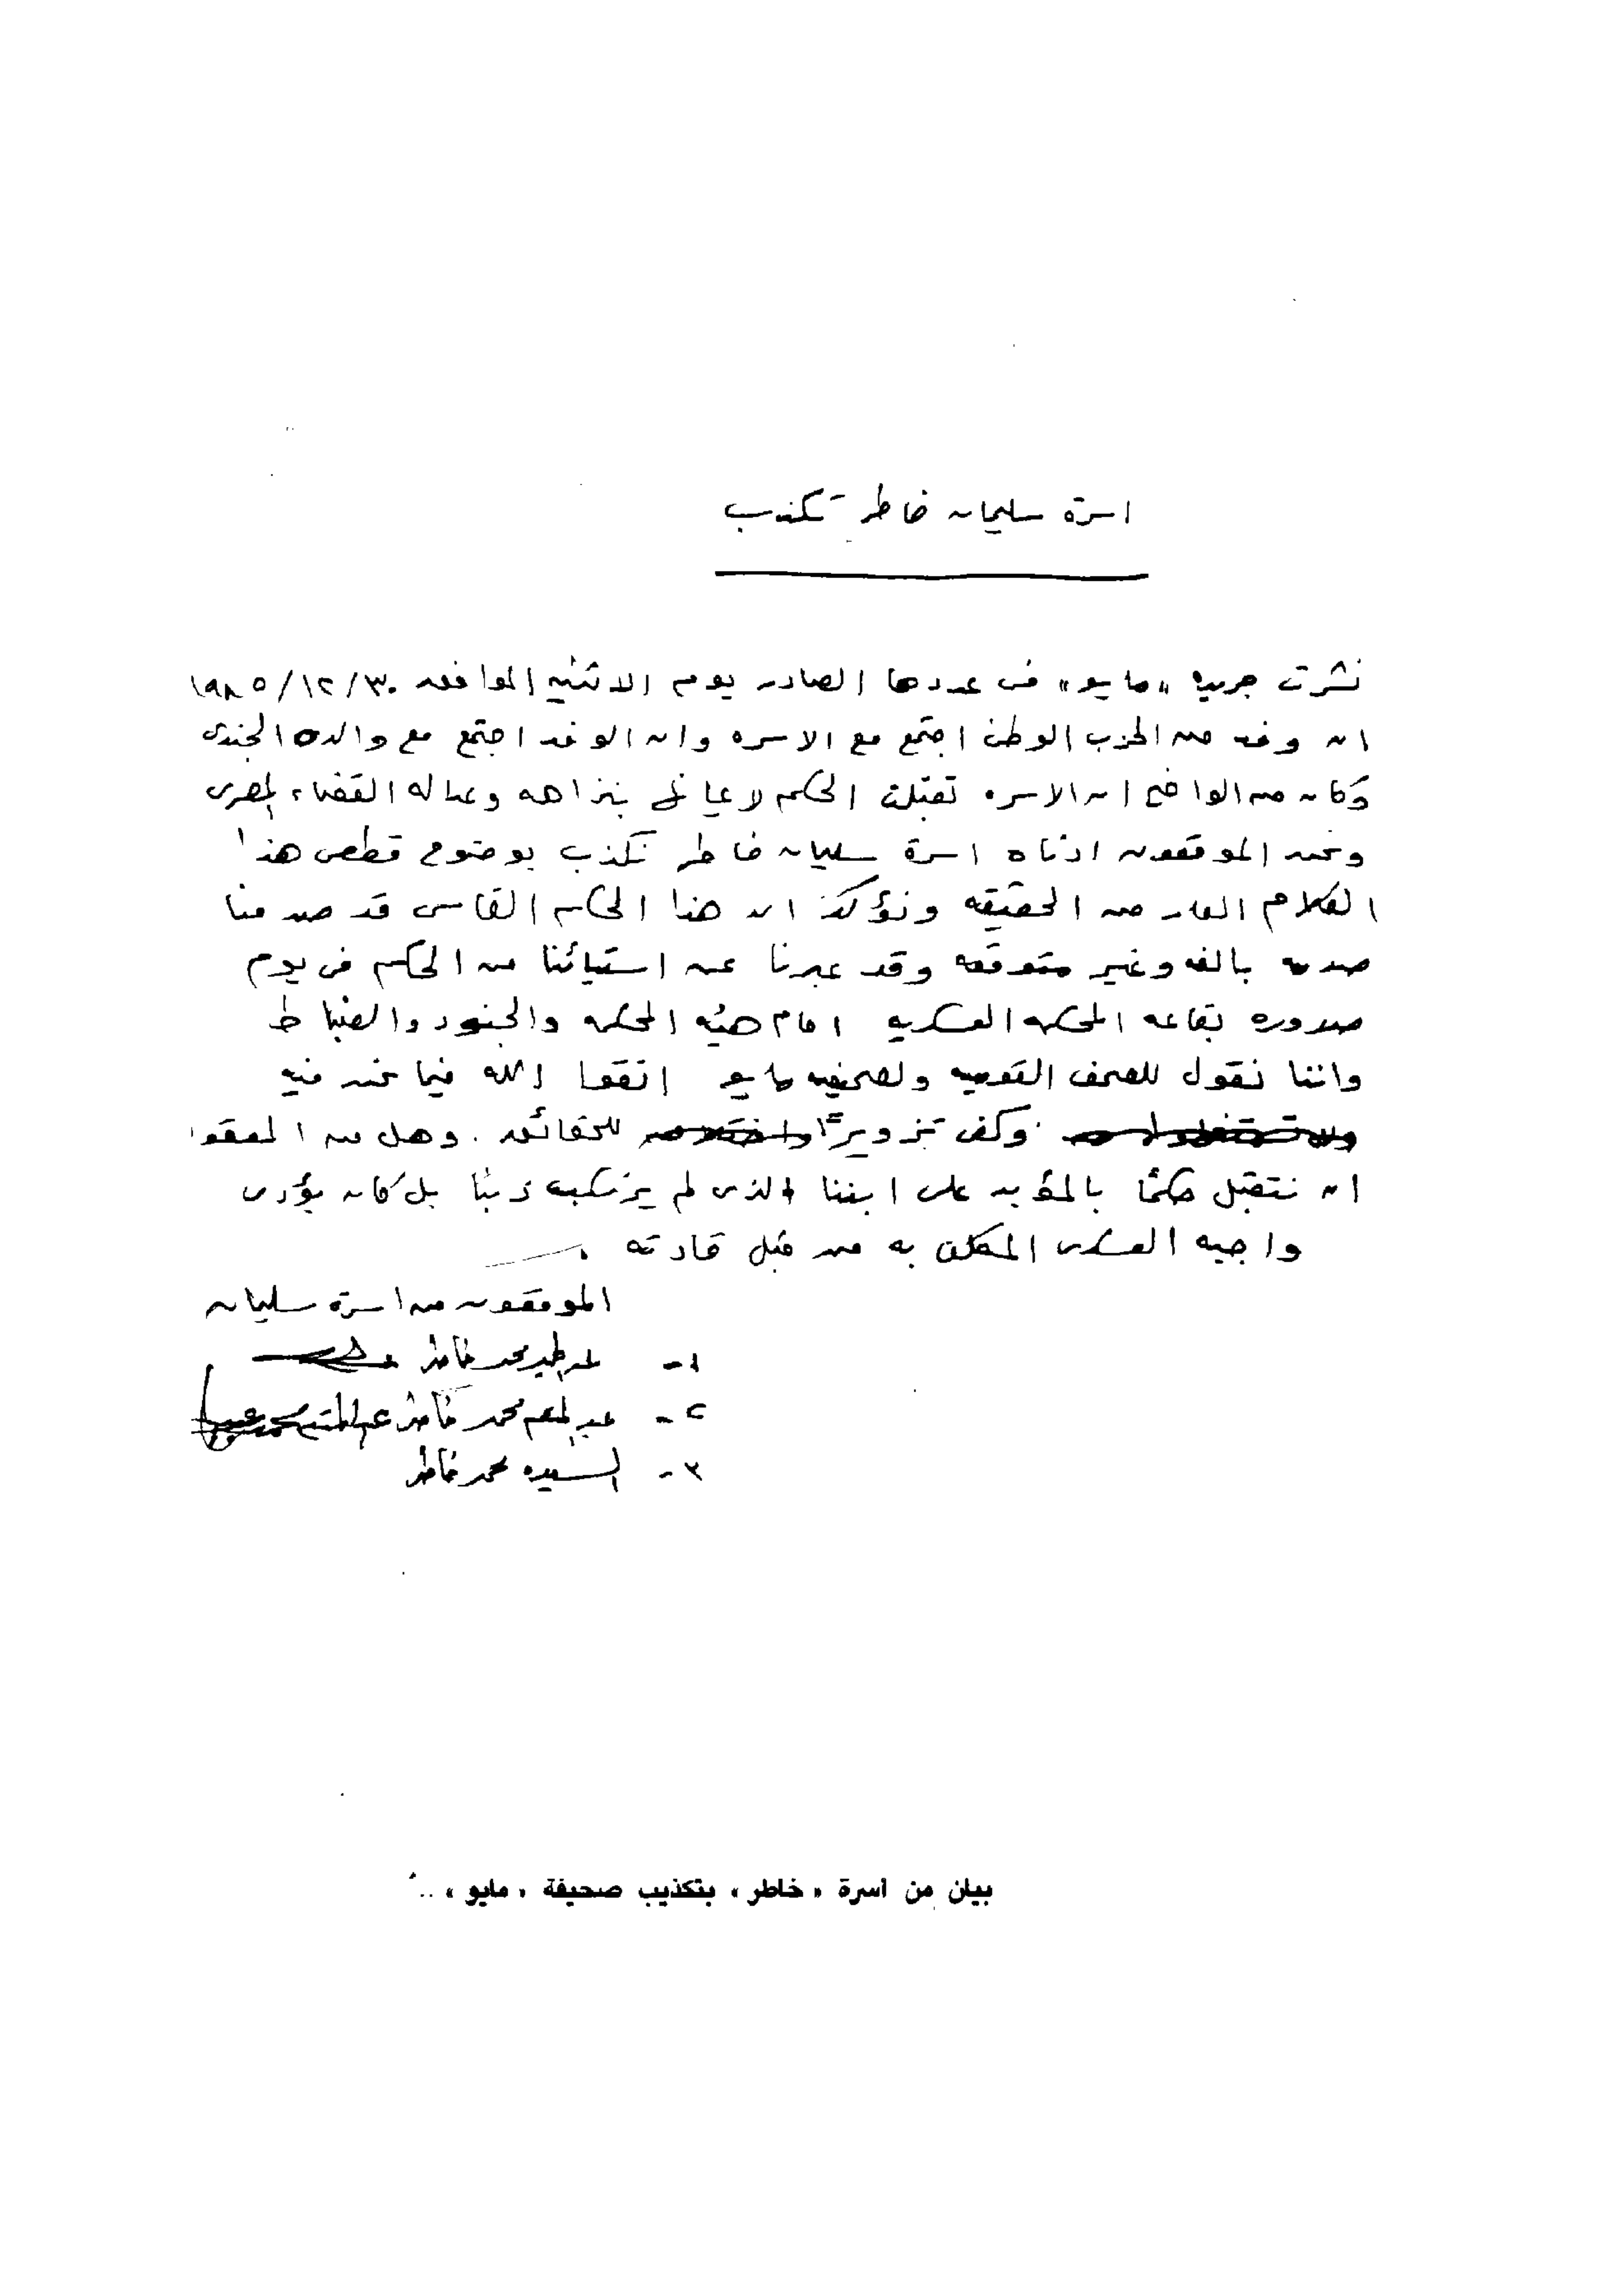 اسرة سليمان خاطر تكذب
نشرت جريده «مايو» فى عددها الصادر يوم الاثنين الموافق ١٩٨٥/١٢/٣٠
ان وفد من الحزب الوطنى اجتمع مع الاسره وان الوفد اجتمع مع والده الجندى
وكان من الواضح ان الاسره تقبلت الحكم لايمانها بنزاهه وعداله القضاء المصرى
ونحن الموقعون ادناه اسرة سليمان خاطر نكذب بوضوح قطعى هذا
الكلام العار من الحقيقه ونؤكد ان هذا الحكم القاسى قد صدمنا
صدمه بالغه وغير متوقعه وقد عبرنا عن استيائنا من الحكم فى يوم
صدوره بقاعه المحكمه العسكريه امام هيئه المحكمه والجنود والضباط
واننا نقول للصحف القوميه ولصحيفه مايو اتقوا الله فيما نحن فيه
وكفى تزويرًا للحقائق . وهل من المعقول
ان نتقبل حكمًا بالمؤبد على ابننا الذى لم يرتكب ذنبًا بل كان يؤدى
واجبه العسكرى المكلف به من قبل قادته .
الموقعون من اسرة سليمان
١- محمد خاطر
٢- عبد المنعم محمد خاطر
٣- السيده محمد خاطر
بيان من أسرة «خاطر» بتكذيب صحيفة «مايو» ..